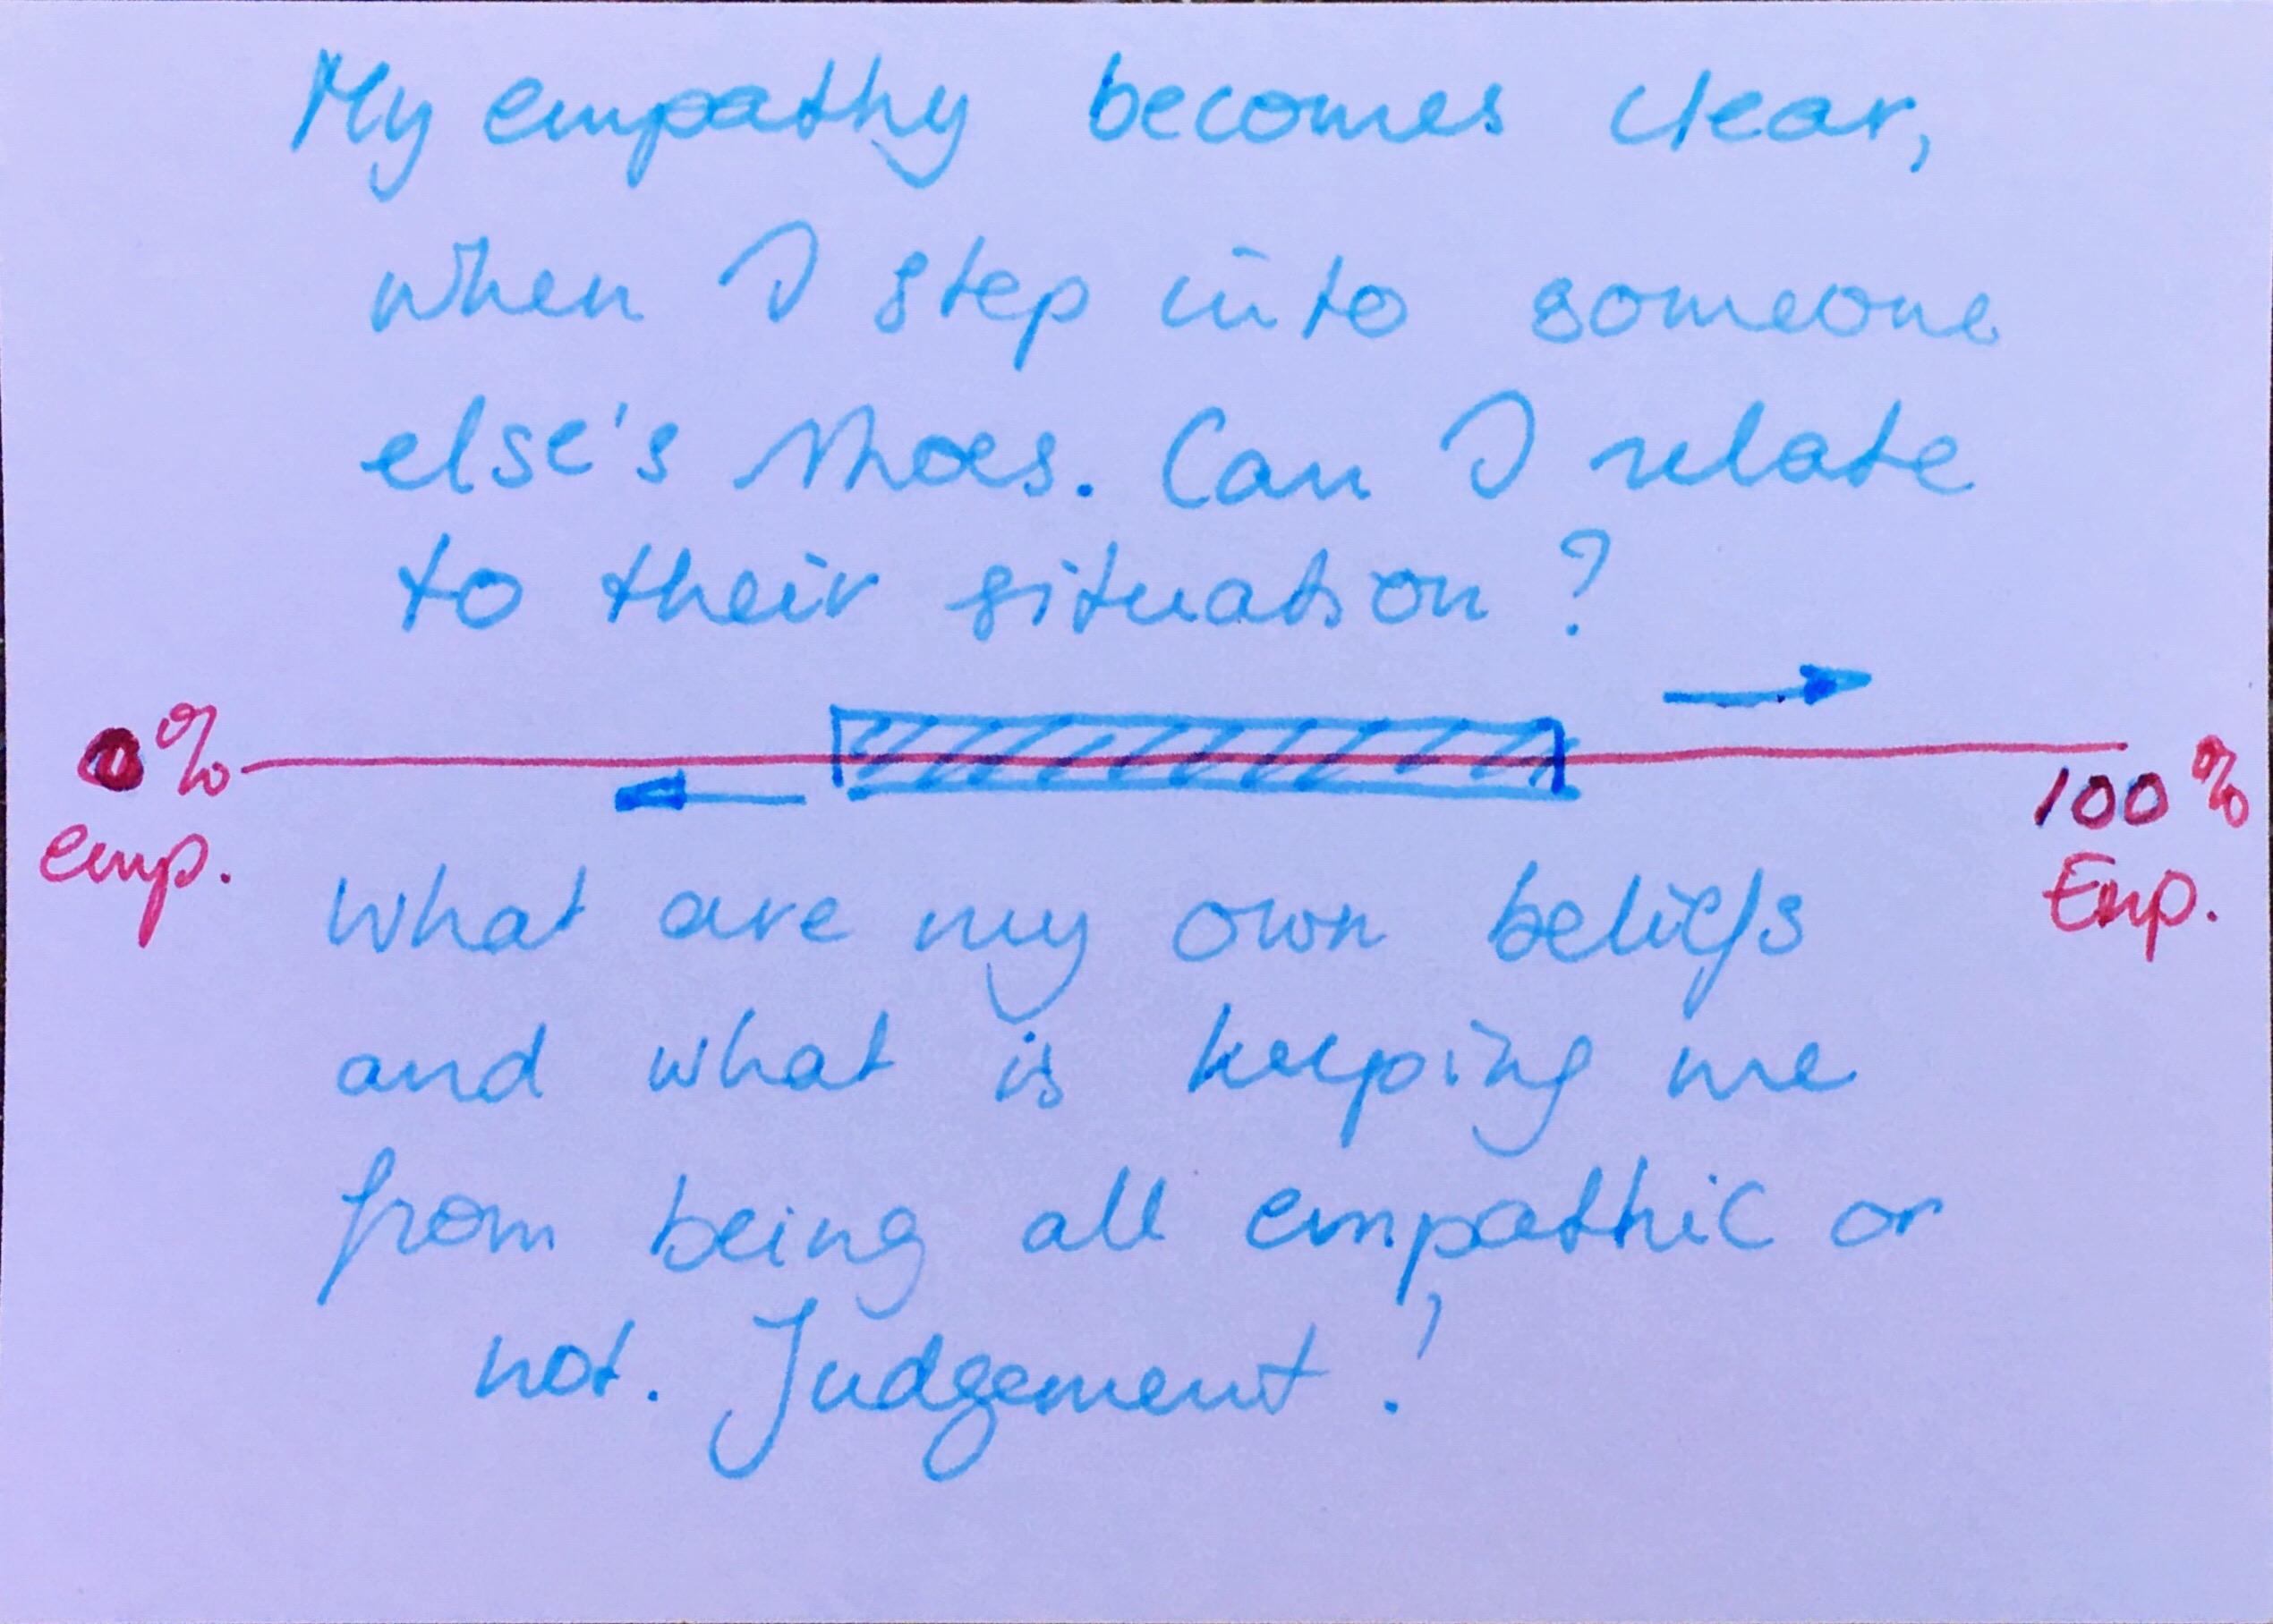 My empathy becomes clear,
when I step into someone
else's shoes. Can I relate
to their situation?
0%
emp.
100%
Emp.
What are my own beliefs
and what is keeping me
from being all empathic or
not. Judgement!